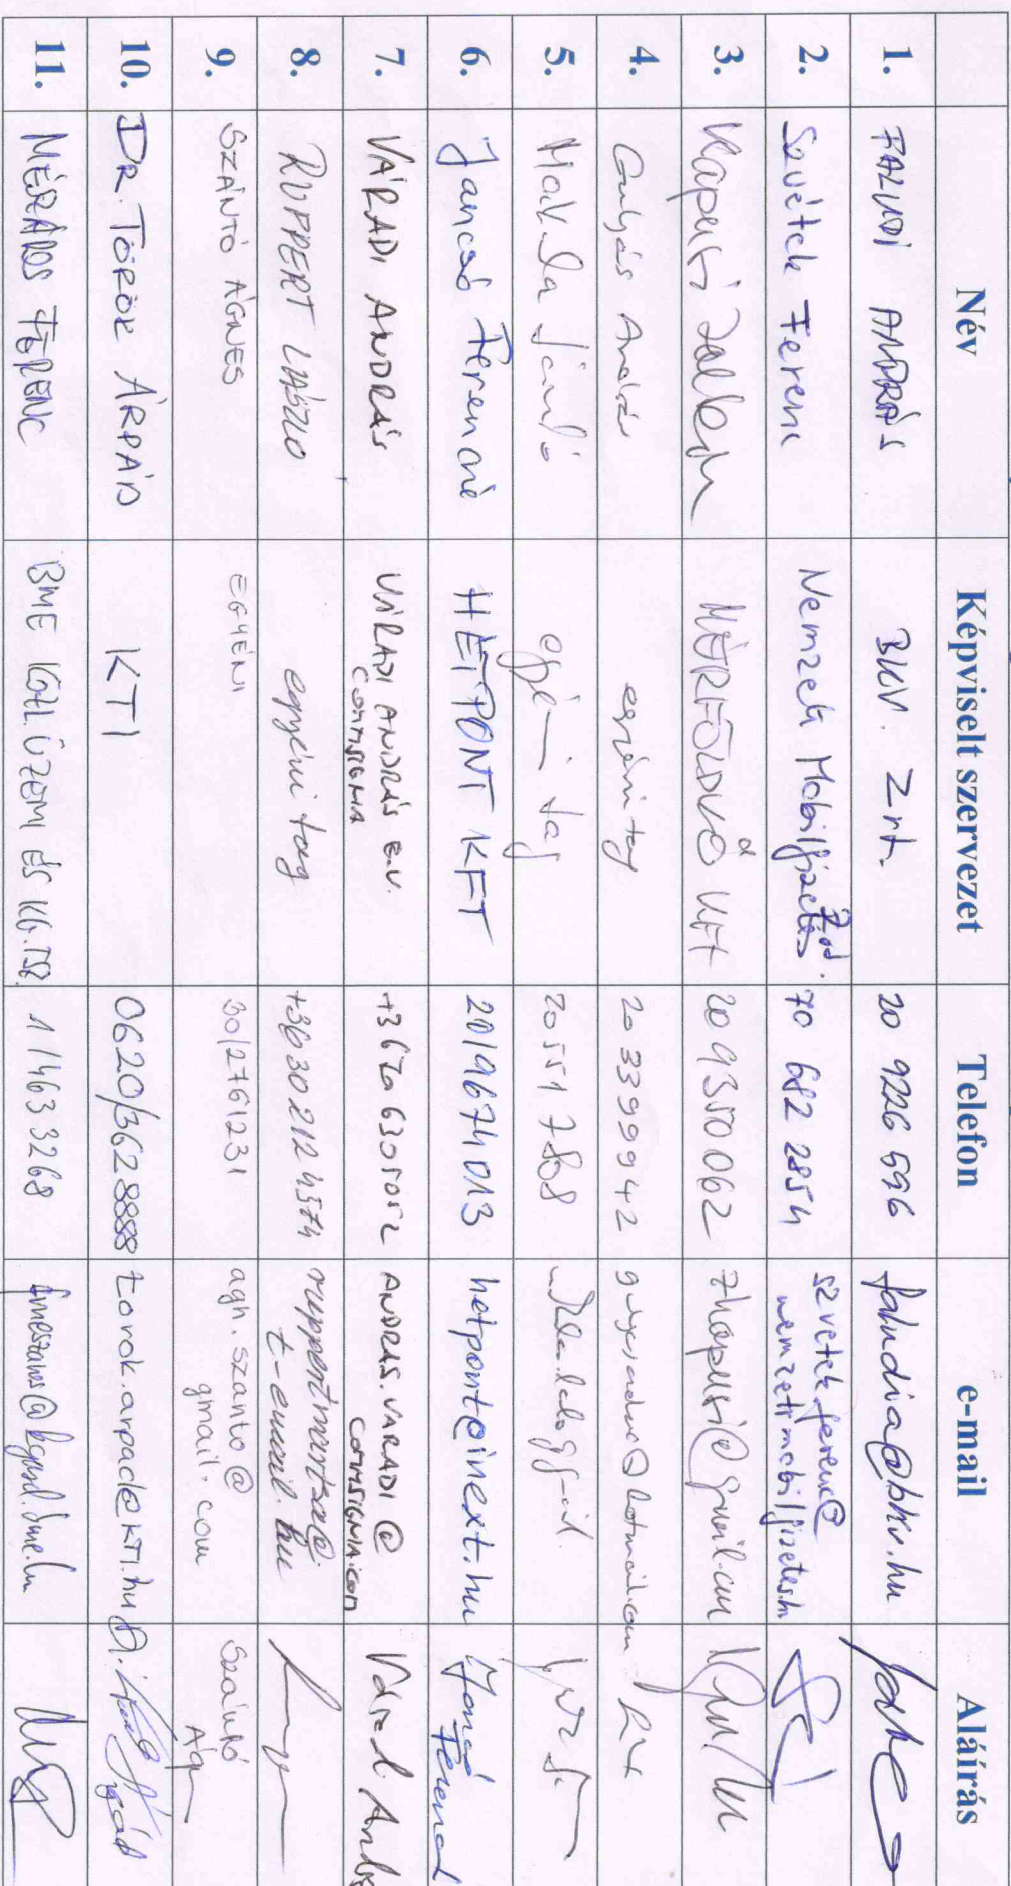 Név Képviselt szervezet Telefon e-mail Aláírás
1. FALUDI ANDRÁS BKV. Zrt. 20 9226 596 faludia@bkv.hu
2. Szvetek Ferenc Nemzeti Mobilfizetési Zrt. 70 682 2854 szvetek.ferenc@
nemzetimobilfizetes.hu
3. Kapusi Zoltán MÉRFÖLDKŐ Kft 20 9350062 zkapusi@gmail.com
4. Gulyás András egyéni tag 20 3399942 gulyasandras@hotmail.com
5. egyéni tag 20 5551788
6. Jancsó Ferencné HÉTPONT KFT 20/9674013 hetpont@inext.hu Jancsó
Ferencné
7. VÁRADI ANDRÁS VÁRADI ANDRÁS E.V.
COMSIGNA +3620 6305052 ANDRAS.VARADI@
COMSIGNA.COM Váradi András
8. RUPPERT LÁSZLÓ egyéni tag +36302124574
t-email.hu
9. SZÁNTÓ ÁGNES EGYÉNI 30/2761231 agn.szanto@
gmail.com Szántó
Ágn
10. DR. TÖRÖK ÁRPÁD KTI 0620/3628888 torok.arpad@KTI.hu
11. MÉSZÁROS FERENC BME KÖZL. ÜZEMI ÉS KG. TSZ. 1/463 3268 fmeszaros@kgazd.bme.hu